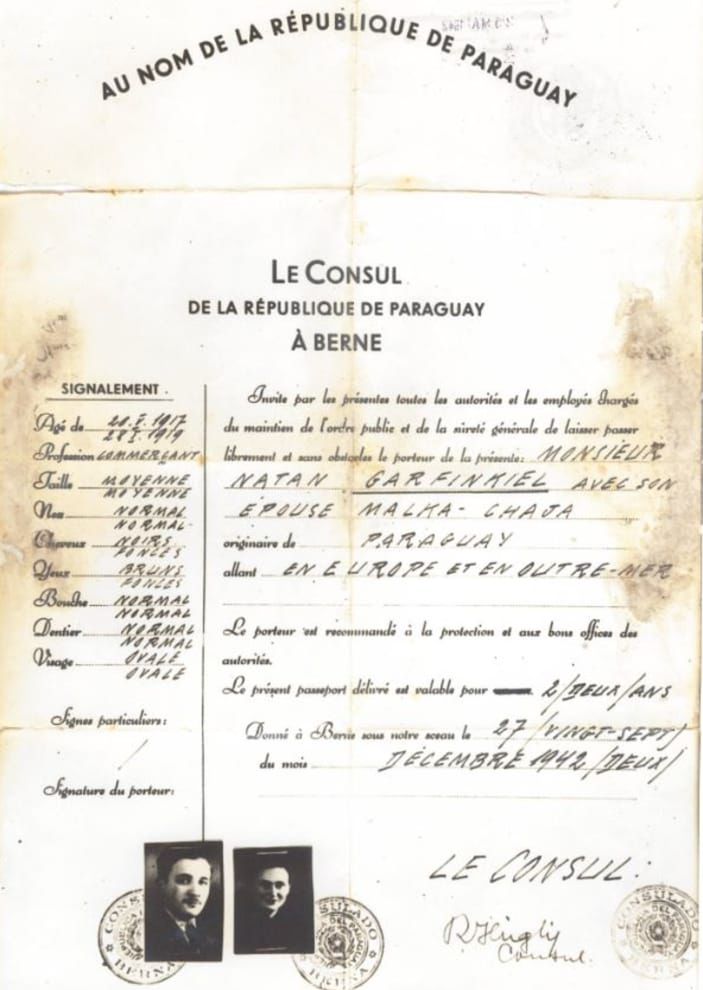 AU NOM DE LA RÉPUBLIQUE DE PARAGUAY
LE CONSUL
DE LA RÉPUBLIQUE DE PARAGUAY
À BERNE
SIGNALEMENT.
Agé de 20.X.1917
28X.1919
Profession COMMERÇANT
Taille MOYENNE
MOYENNE
Nez NORMAL
NORMAL
Cheveux NOIRS
FONCÉS
Yeux BRUNS
FONCÉS
Bouche NORMAL
NORMAL
Dentier NORMAL
NORMAL
Visage OVALE
OVALE
Signes particuliers:
/
Signature du porteur:
Invite par les présentes toutes les autorités et les employés chargés
du maintien de l'ordre public et de la sûreté générale de laisser passer
librement et sans obstacles le porteur de la présente: MONSIEUR
NATAN GARFINKIEL AVEC SON
ÉPOUSE MALKA-CHAJA
originaire de PARAGUAY
allant EN EUROPE ET EN OUTRE-MER
Le porteur est recommandé à la protection et aux bons offices des
autorités.
Le présent passeport délivré est valable pour 2/DEUX/ANS
Donné à Berne sous notre sceau le 27/VINGT-SEPT/
du mois DÉCEMBRE 1942/DEUX/
LE CONSUL:
RHügly
Consul.
CONSULADO DEL PARAGUAY BERNA
CONSULADO DEL PARAGUAY BERNA
CONSULADO DEL PARAGUAY